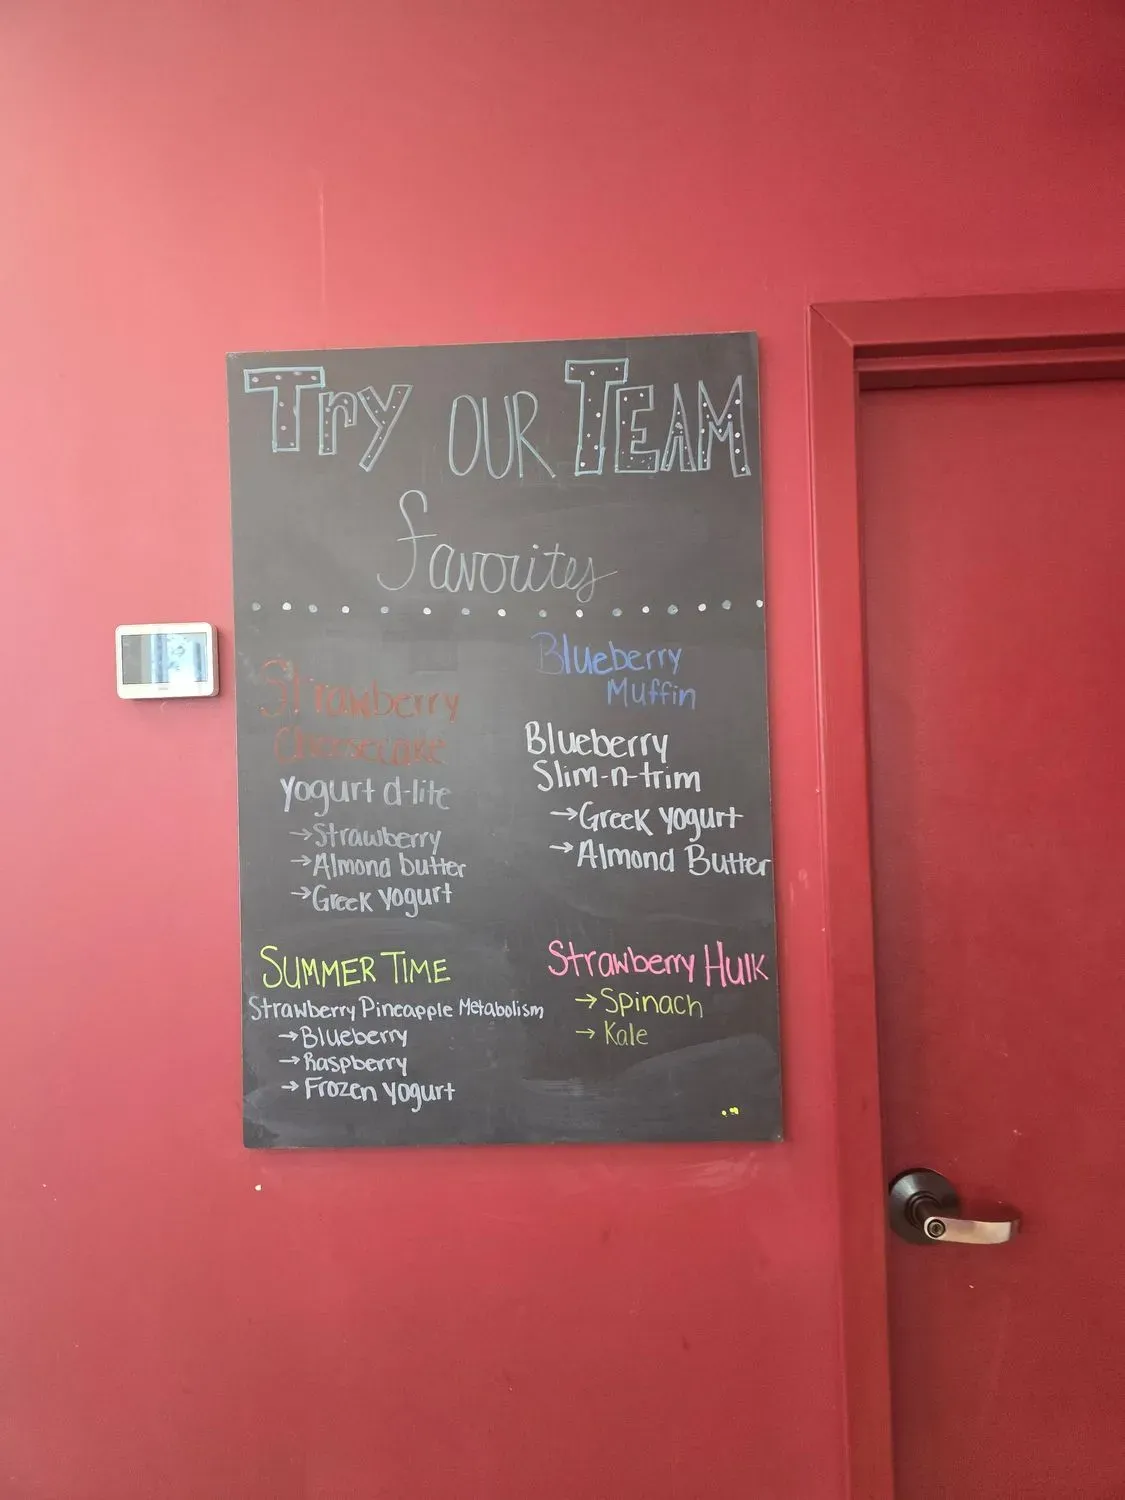 Try OUR TEAM
favorites
Strawberry
Cheesecake
Yogurt d-lite
→Strawberry
→Almond butter
→Greek Yogurt
Blueberry
Muffin
Blueberry
Slim-n-trim
→Greek Yogurt
→Almond Butter
SUMMER TIME
Strawberry Pineapple Metabolism
→Blueberry
→Raspberry
→Frozen Yogurt
Strawberry Hulk
→Spinach
→Kale